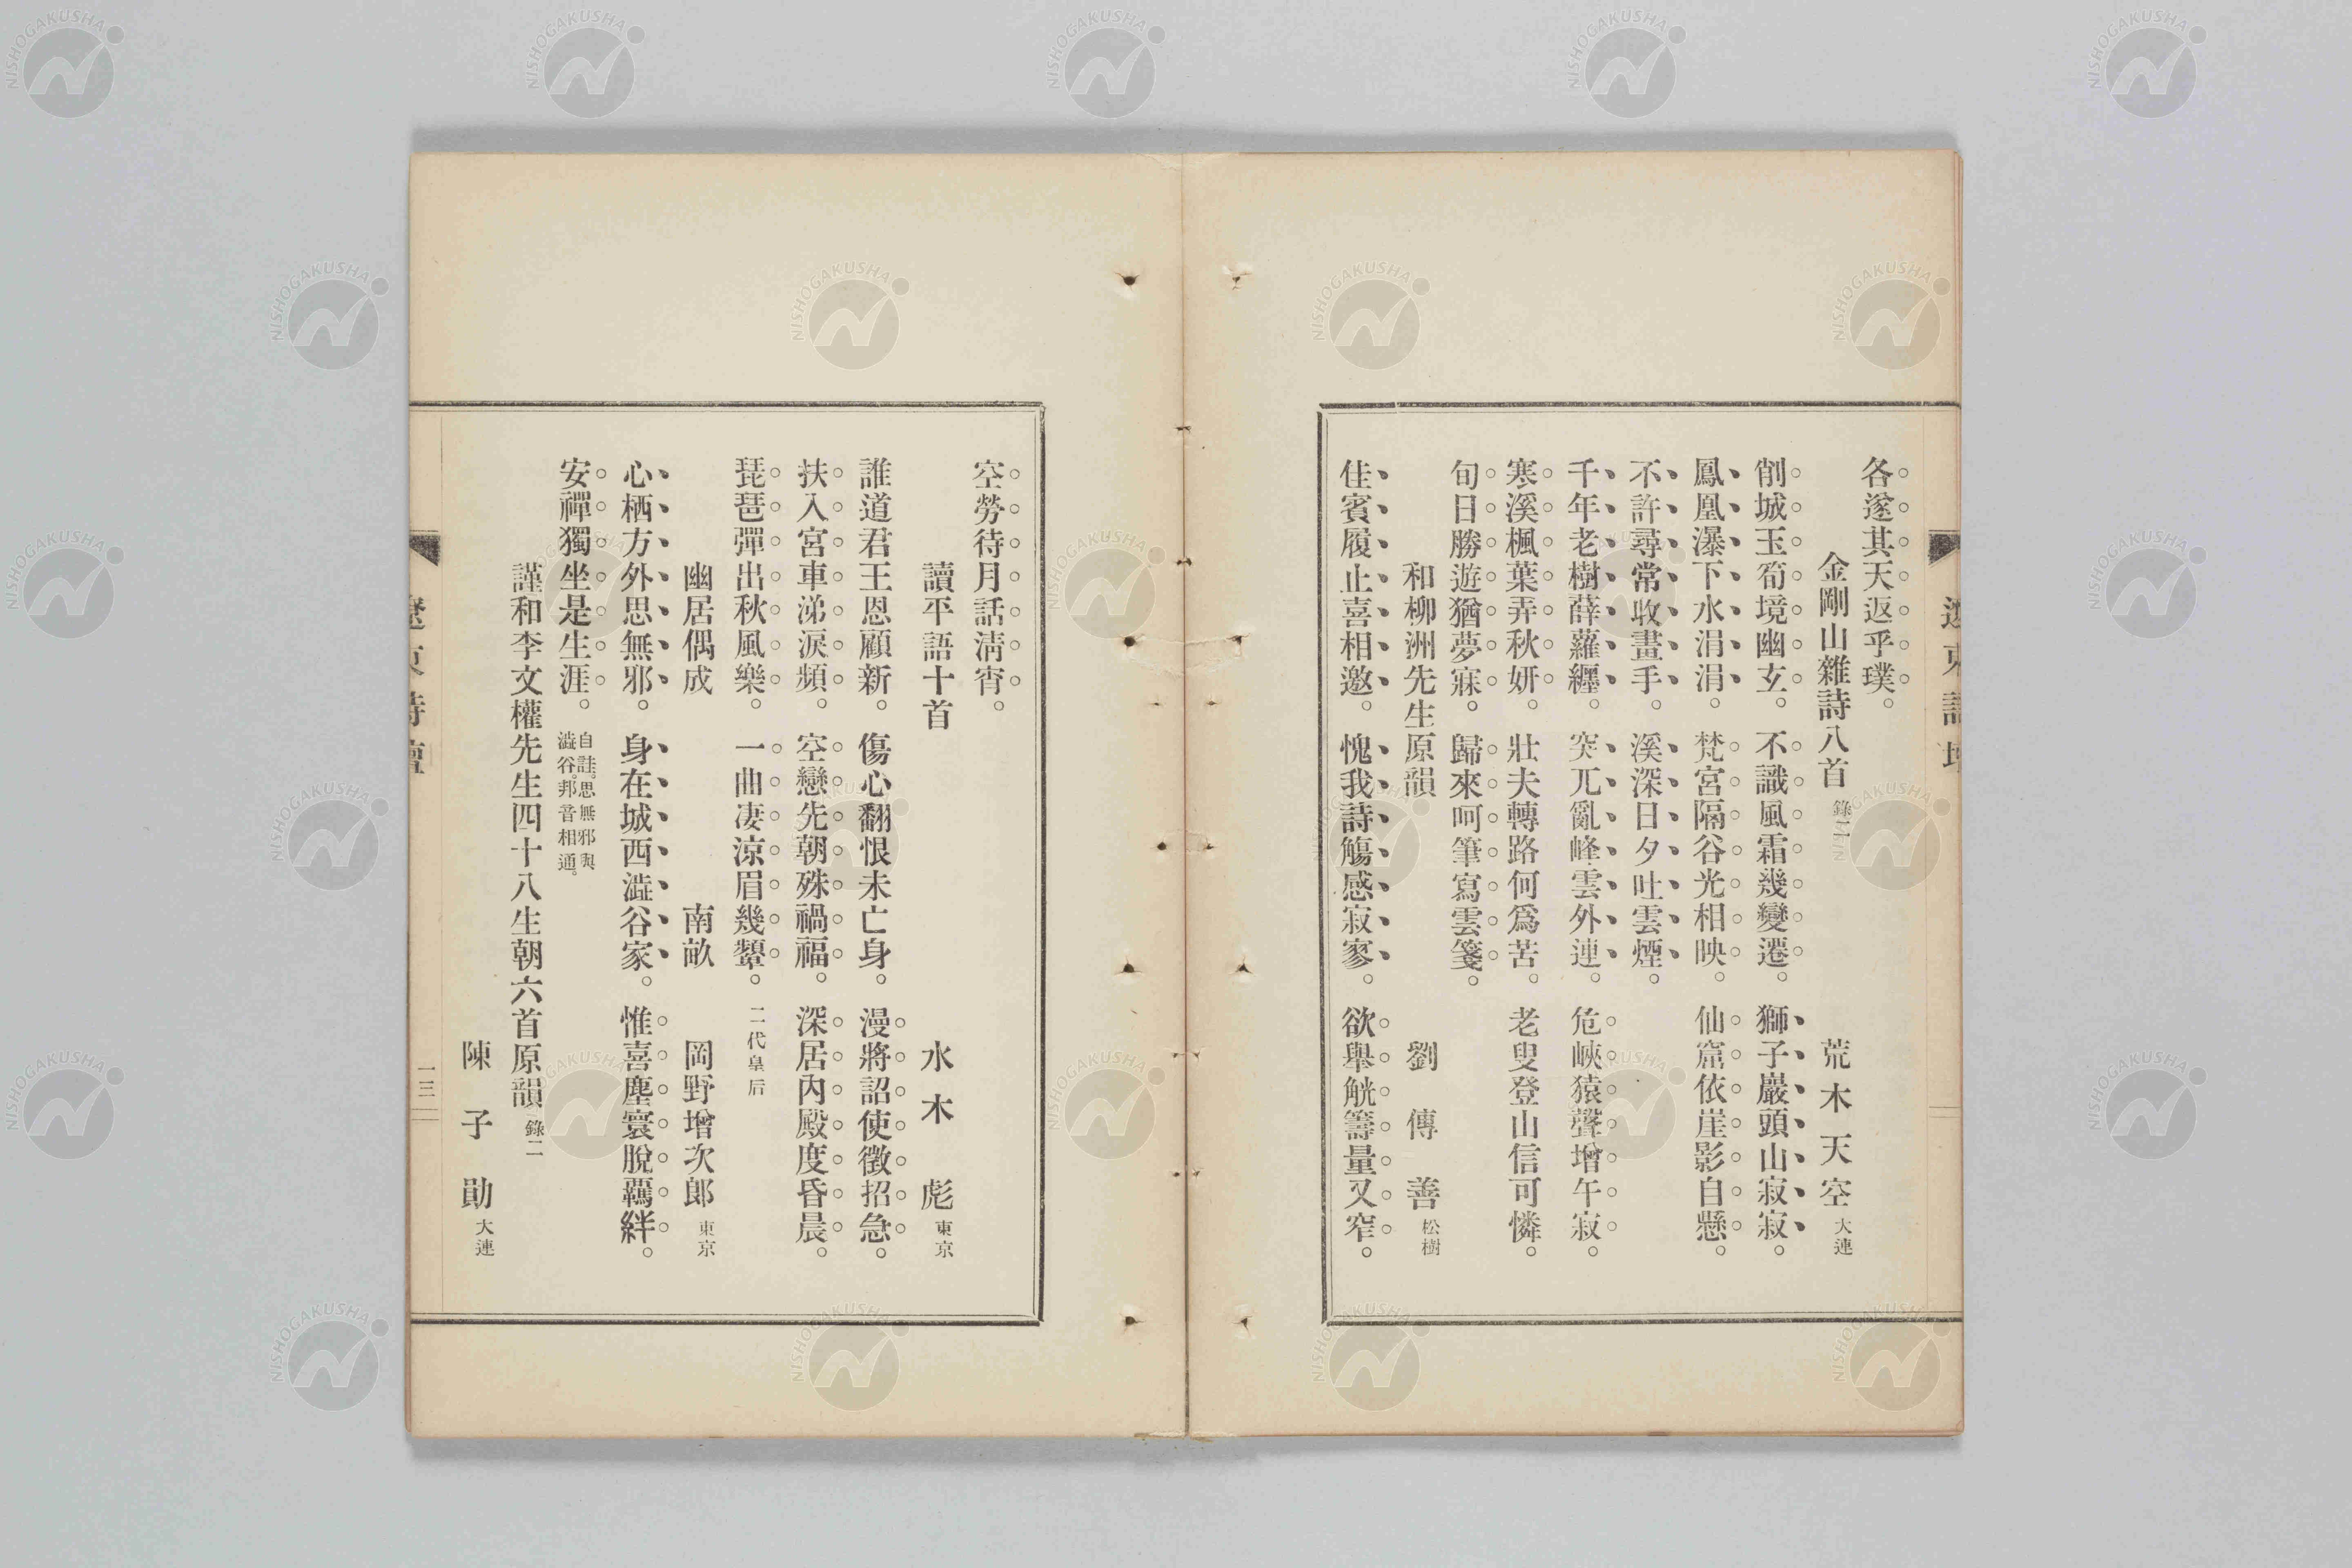 各遂其天返乎璞。
金剛山雜詩八首 錄二 荒木天空 大連
削城玉筍境幽玄。不識風霜幾變遷。獅子巖頭山寂寂。
鳳凰瀑下水涓涓。梵宮隔谷光相映。仙窟依崖影自懸。
不許尋常收畫手。溪深日夕吐雲煙。
千年老樹薜蘿纒。突兀亂峰雲外連。危峽猿聲增午寂。
寒溪楓葉弄秋妍。壯夫轉路何爲苦。老叟登山信可憐。
旬日勝遊猶夢寐。歸來呵筆寫雲箋。
和柳洲先生原韻 劉傳善 松樹
佳賓履止喜相邀。愧我詩觴感寂寥。欲舉觥籌量又窄。
空勞待月話淸宵。
讀平語十首 水木彪 東京
誰道君王恩顧新。傷心翻恨未亡身。漫將詔使徵招急。
扶入宮車涕淚頻。空戀先朝殊禍福。深居內殿度昏晨。
琵琶彈出秋風樂。一曲凄涼眉幾顰。 二代皇后
幽居偶成 南畝 岡野增次郎 東京
心栖方外思無邪。身在城西澁谷家。惟喜塵寰脫羈絆。
安禪獨坐是生涯。 自註。思無邪與
澁谷。邦音相通。
謹和李文權先生四十八生朝六首原韻 錄二
陳子勛 大連
遼東詩壇
一三
NISHOGAKUSHA